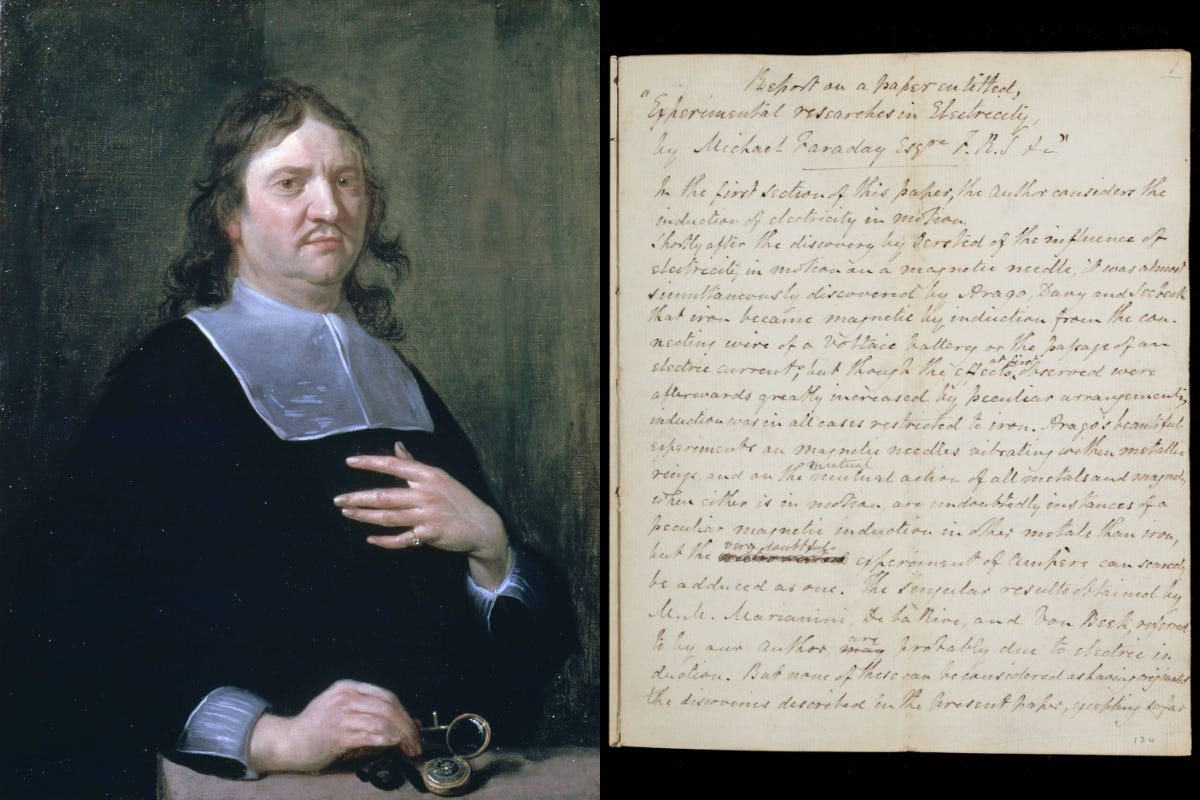 1
Report on a paper entitled,
"Experimental researches in Electricity,
by Michael Faraday Esqre F.R.S &c"
In the first section of this paper, the author considers the
induction of electricity in motion.
Shortly after the discovery by Oersted of the influence of
electricity in motion on a magnetic needle, it was almost
simultaneously discovered by Arago, Davy and Seebeck
that iron became magnetic by induction from the con-
necting wire of a Voltaic battery or the passage of an
electric current; but though the effects at first observed were
afterwards greatly increased by peculiar arrangements,
induction was in all cases restricted to iron. Arago's beautiful
experiments on magnetic needles vibrating within metallic
rings, and on the mutual action of all metals and magnets,
when either is in motion, are undoubtedly instances of a
peculiar magnetic induction in other metals than iron,
but the very doubtful experiment of Ampere can scarcely
be adduced as one. The singular results obtained by
M.M. Marianini, De la Rive, and Von Beek, referred
to by our author, are probably due to electric in
duction. But none of these can be considered as having originated
the discoveries described in the present paper, excepting so far